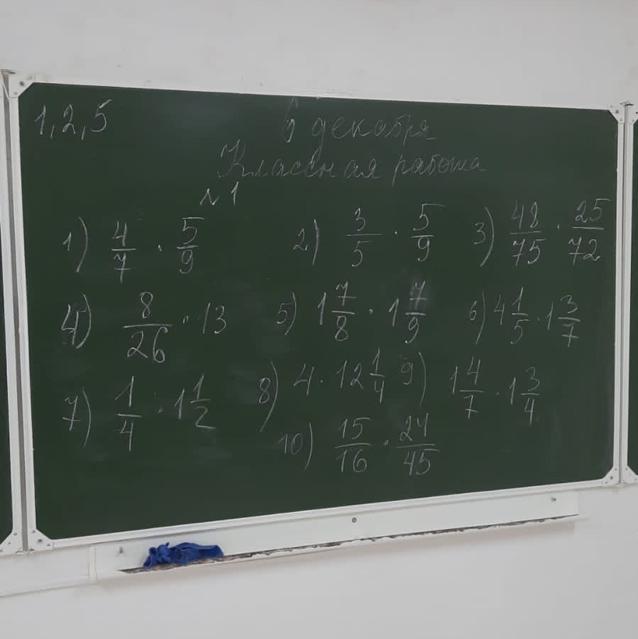 1, 2, 5
6 декабря
Классная работа
№1
1) 4/7 · 5/9 2) 3/5 · 5/9 3) 48/75 · 25/72
4) 8/26 · 13 5) 1 7/8 · 1 7/9 6) 4 1/5 · 1 3/7
7) 1/4 · 1 1/2 8) 4 · 12 1/4 9) 1 4/7 · 1 3/4
10) 15/16 · 24/45